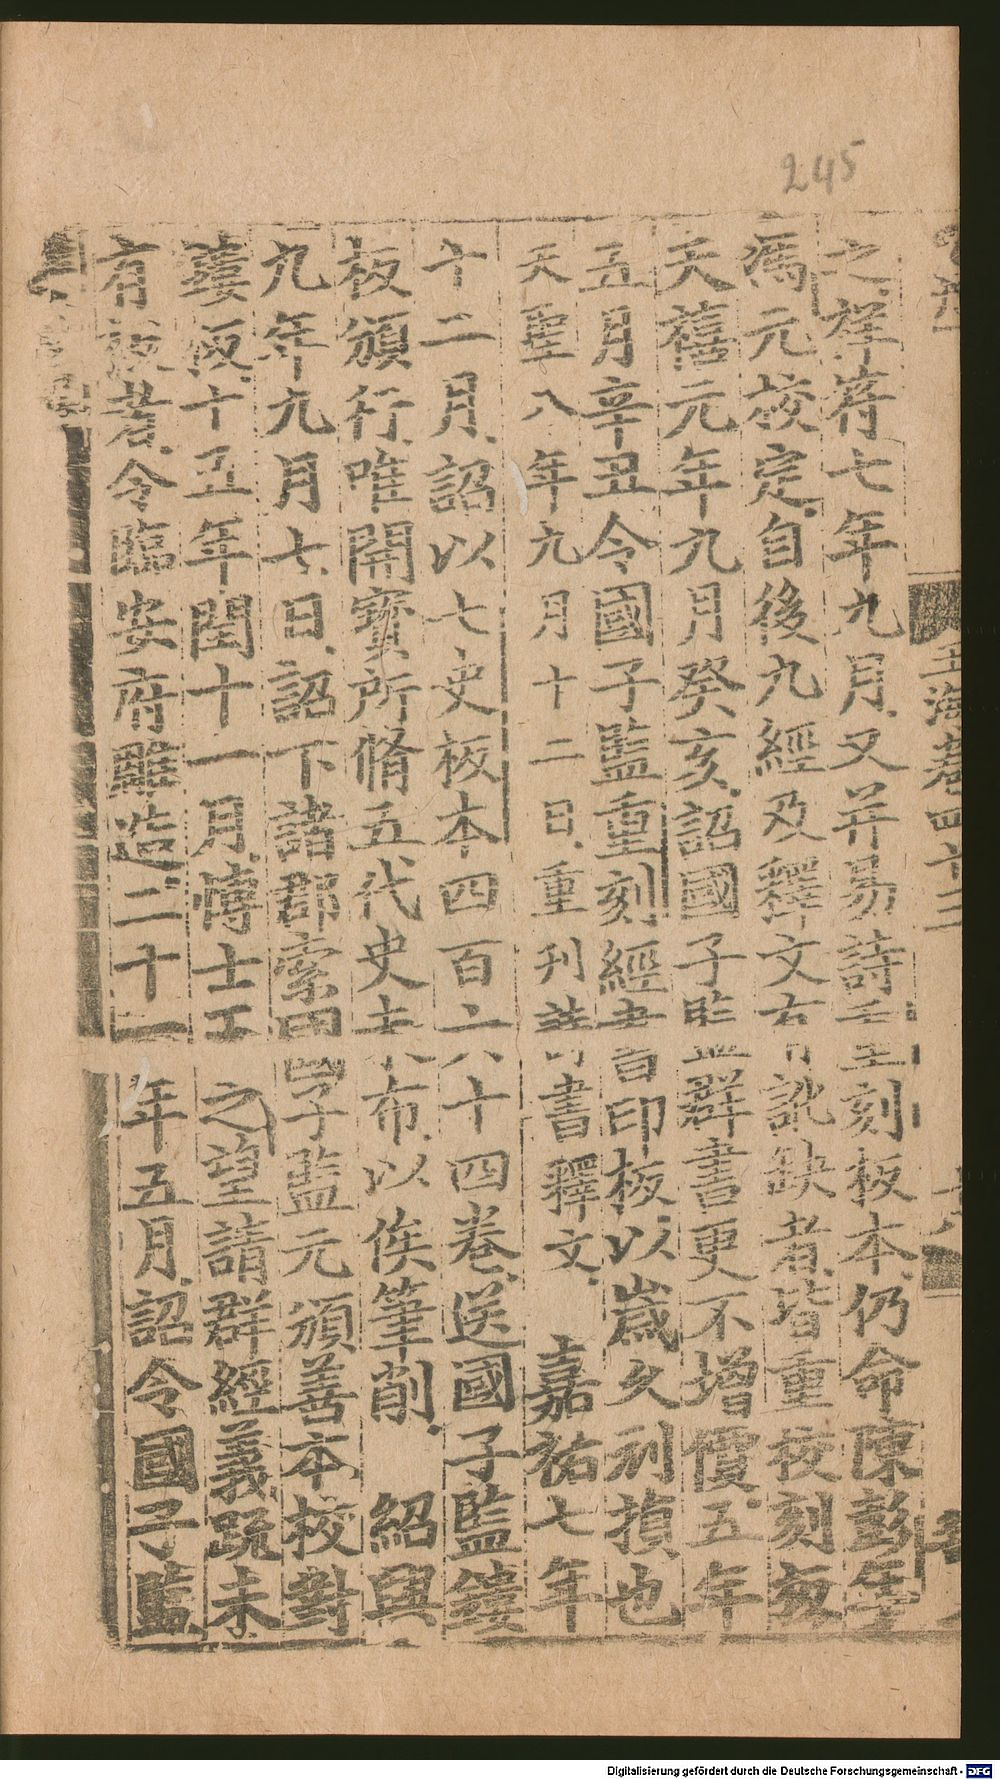 245
玉海卷四十三
之祥符七年九月又并易詩重刻板本仍命陳彭年
馮元校定自後九經及釋文有訛缺者皆重校刻板
天禧元年九月癸亥詔國子監群書更不增價五年
五月辛丑令國子監重刻經書印板以歲久刓損也
天聖八年九月十二日重刊書釋文 嘉祐七年
十二月詔以七史板本四百六十四卷送國子監鏤
板頒行唯開寶所脩五代史未布以俟筆削 紹興
九年九月七日詔下諸郡索國子監元頒善本校對
鏤板十五年閏十一月博士王之望請群經義疏未
有板者令臨安府雕造二十一年五月詔令國子監
Digitalisierung gefördert durch die Deutsche Forschungsgemeinschaft - DFG